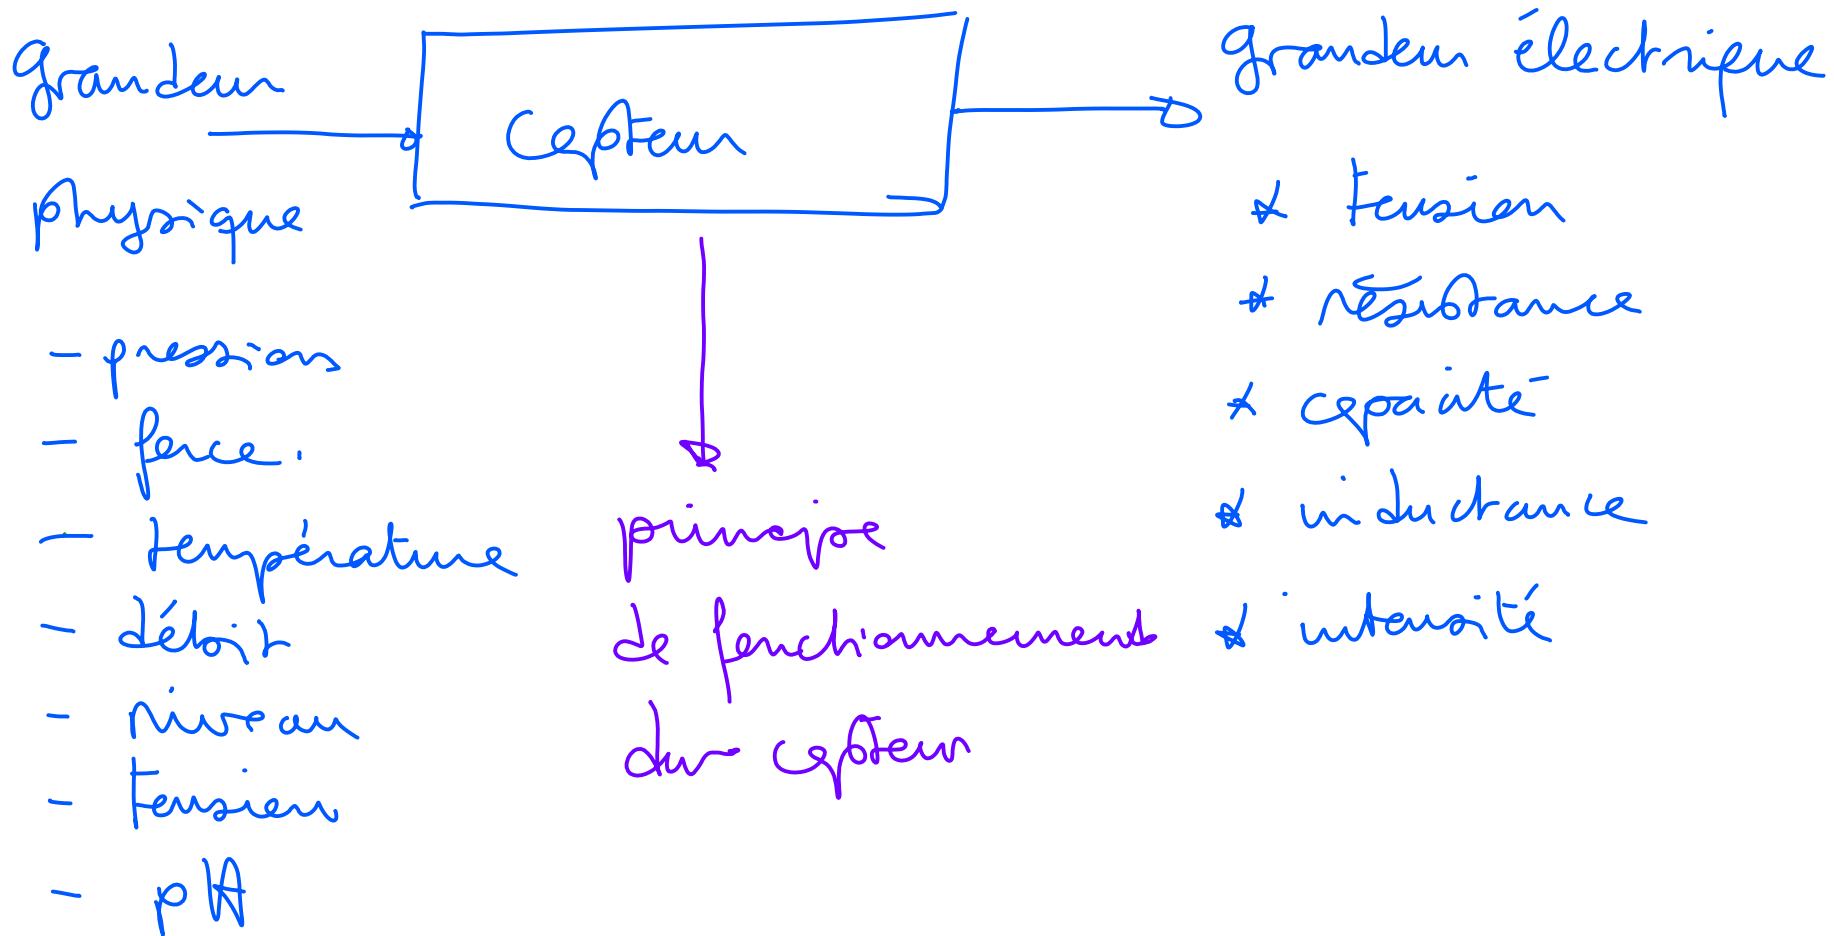 Grandeur
physique
- pression
- force.
- température
- débit
- niveau
- tension
- pH
Capteur
principe
de fonctionnement
du capteur
Grandeur électrique
* tension
* résistance
* capacité
* inductance
* intensité